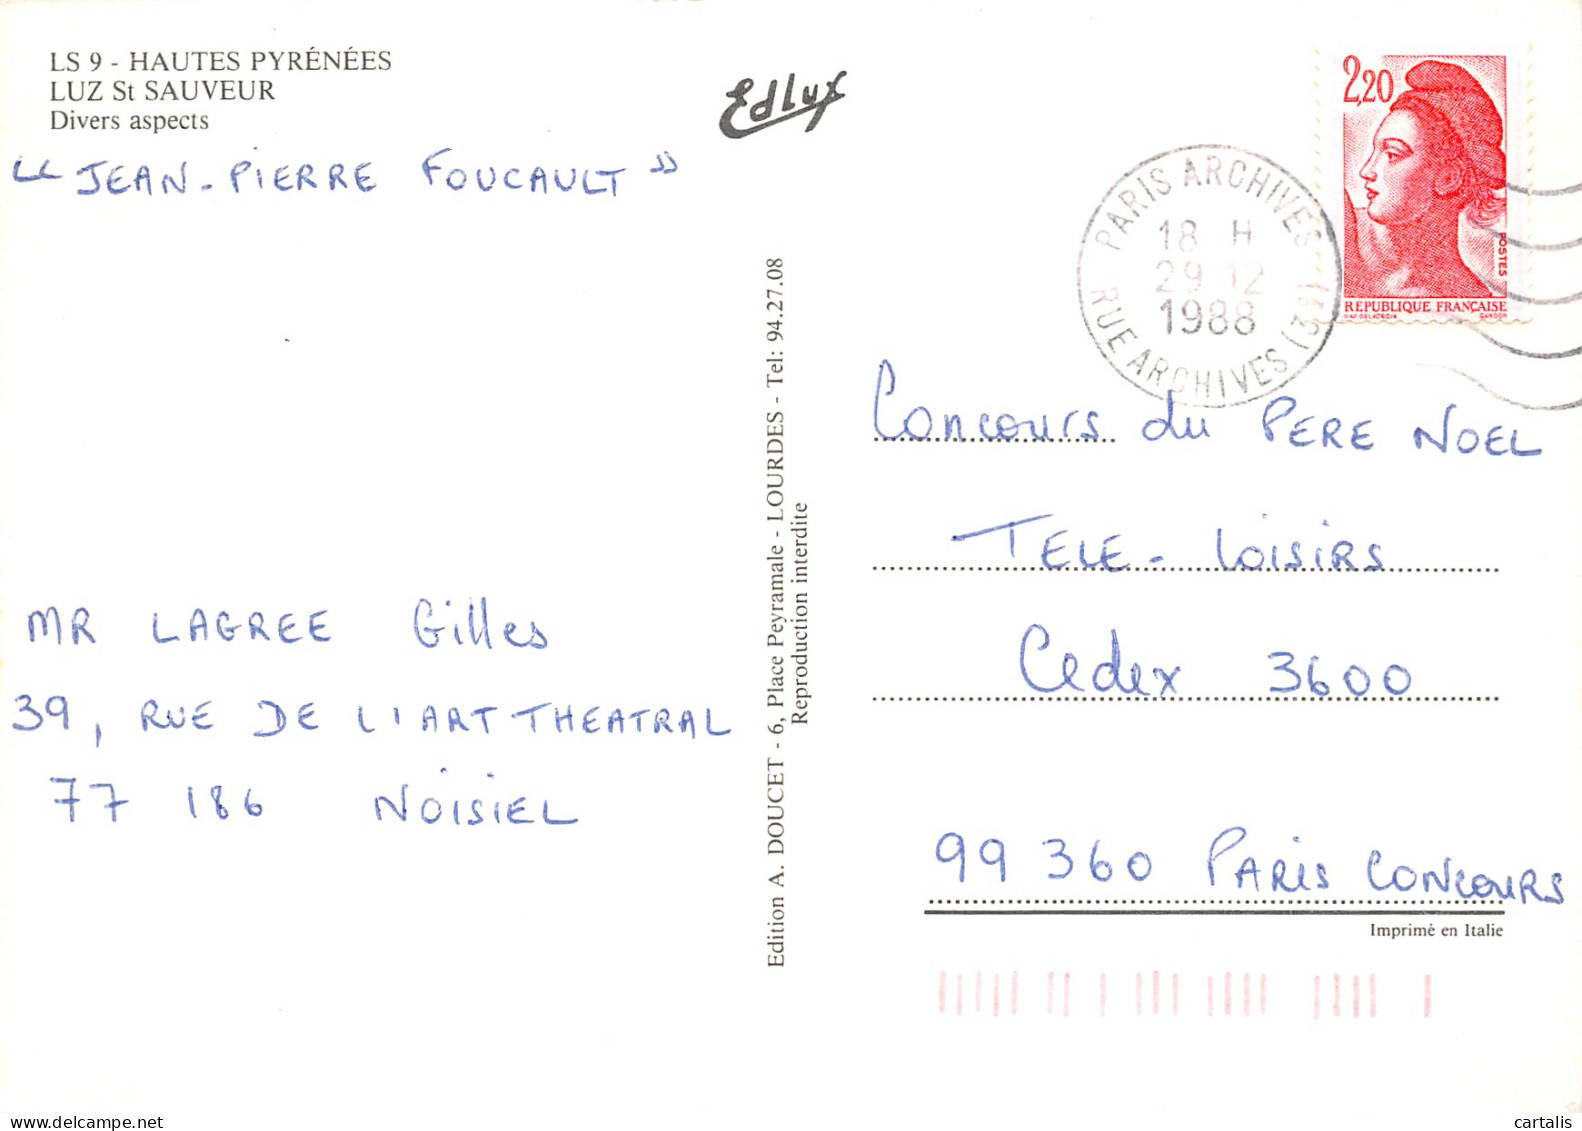 LS 9 - HAUTES PYRÉNÉES
LUZ St SAUVEUR
Divers aspects
Edlux
" JEAN-PIERRE FOUCAULT "
MR LAGREE Gilles
39, RUE DE L'ART THEATRAL
77 186 NOISIEL
Edition A. DOUCET - 6, Place Peyramale - LOURDES - Tel: 94.27.08
Reproduction interdite
2,20
POSTES
REPUBLIQUE FRANÇAISE
D'AP DELACROIX GANDON
PARIS ARCHIVES
18 H
29 12
1988
RUE ARCHIVES (3e)
Concours du PERE NOEL
TELE-Loisirs
Cedex 3600
99 360 PARIS CONCOURS
Imprimé en Italie
cartalis
www.delcampe.net